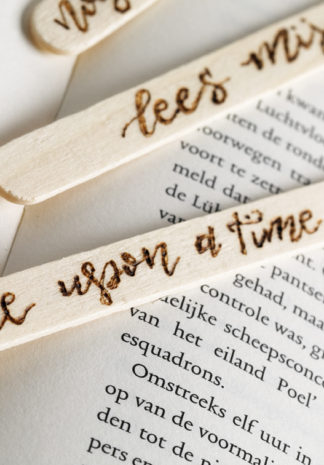 lees
upon a time
kwan
Luchtvlo
ten de rond
voorwegen tra
voort te zett
meld dat
de Lük
van
pantse
gehad, maa
controle was, g
elijke scheepsconc
van het eiland Poel'
esquadrons.
Omstreeks elf uur in
op van de voormali
den tot de
pers en